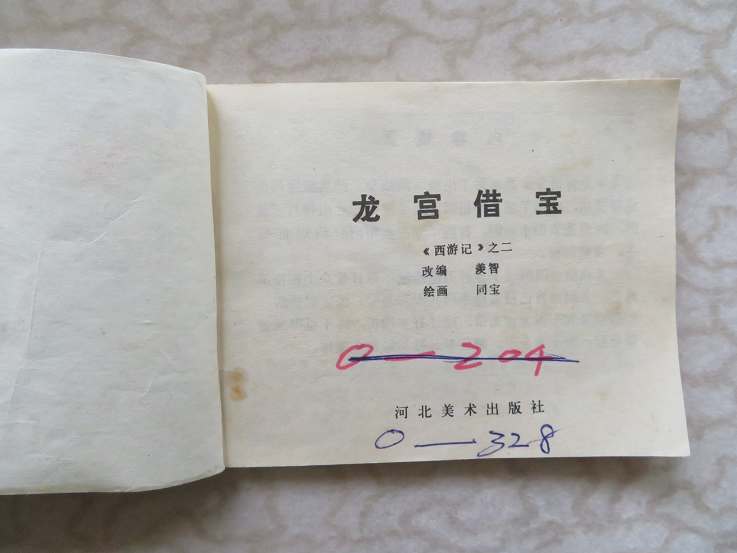 龙宫借宝
《西游记》之二
改编 羡智
绘画 同宝
0—204
河北美术出版社
0—328